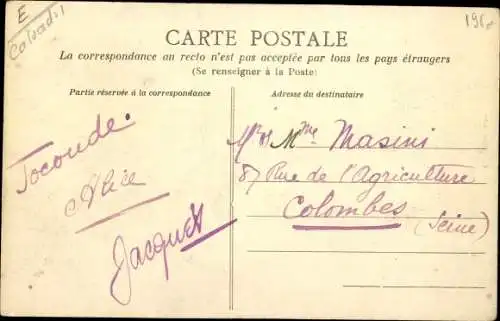 E
Calvados
CARTE POSTALE
La correspondance au recto n'est pas acceptée par tous les pays étrangers
(Se renseigner à la Poste)
Partie réservée à la correspondance
Joconde.
Alice
Jacques
Adresse du destinataire
Mr et Mme Masini
87 Rue de l'Agriculture
Colombes
(Seine)